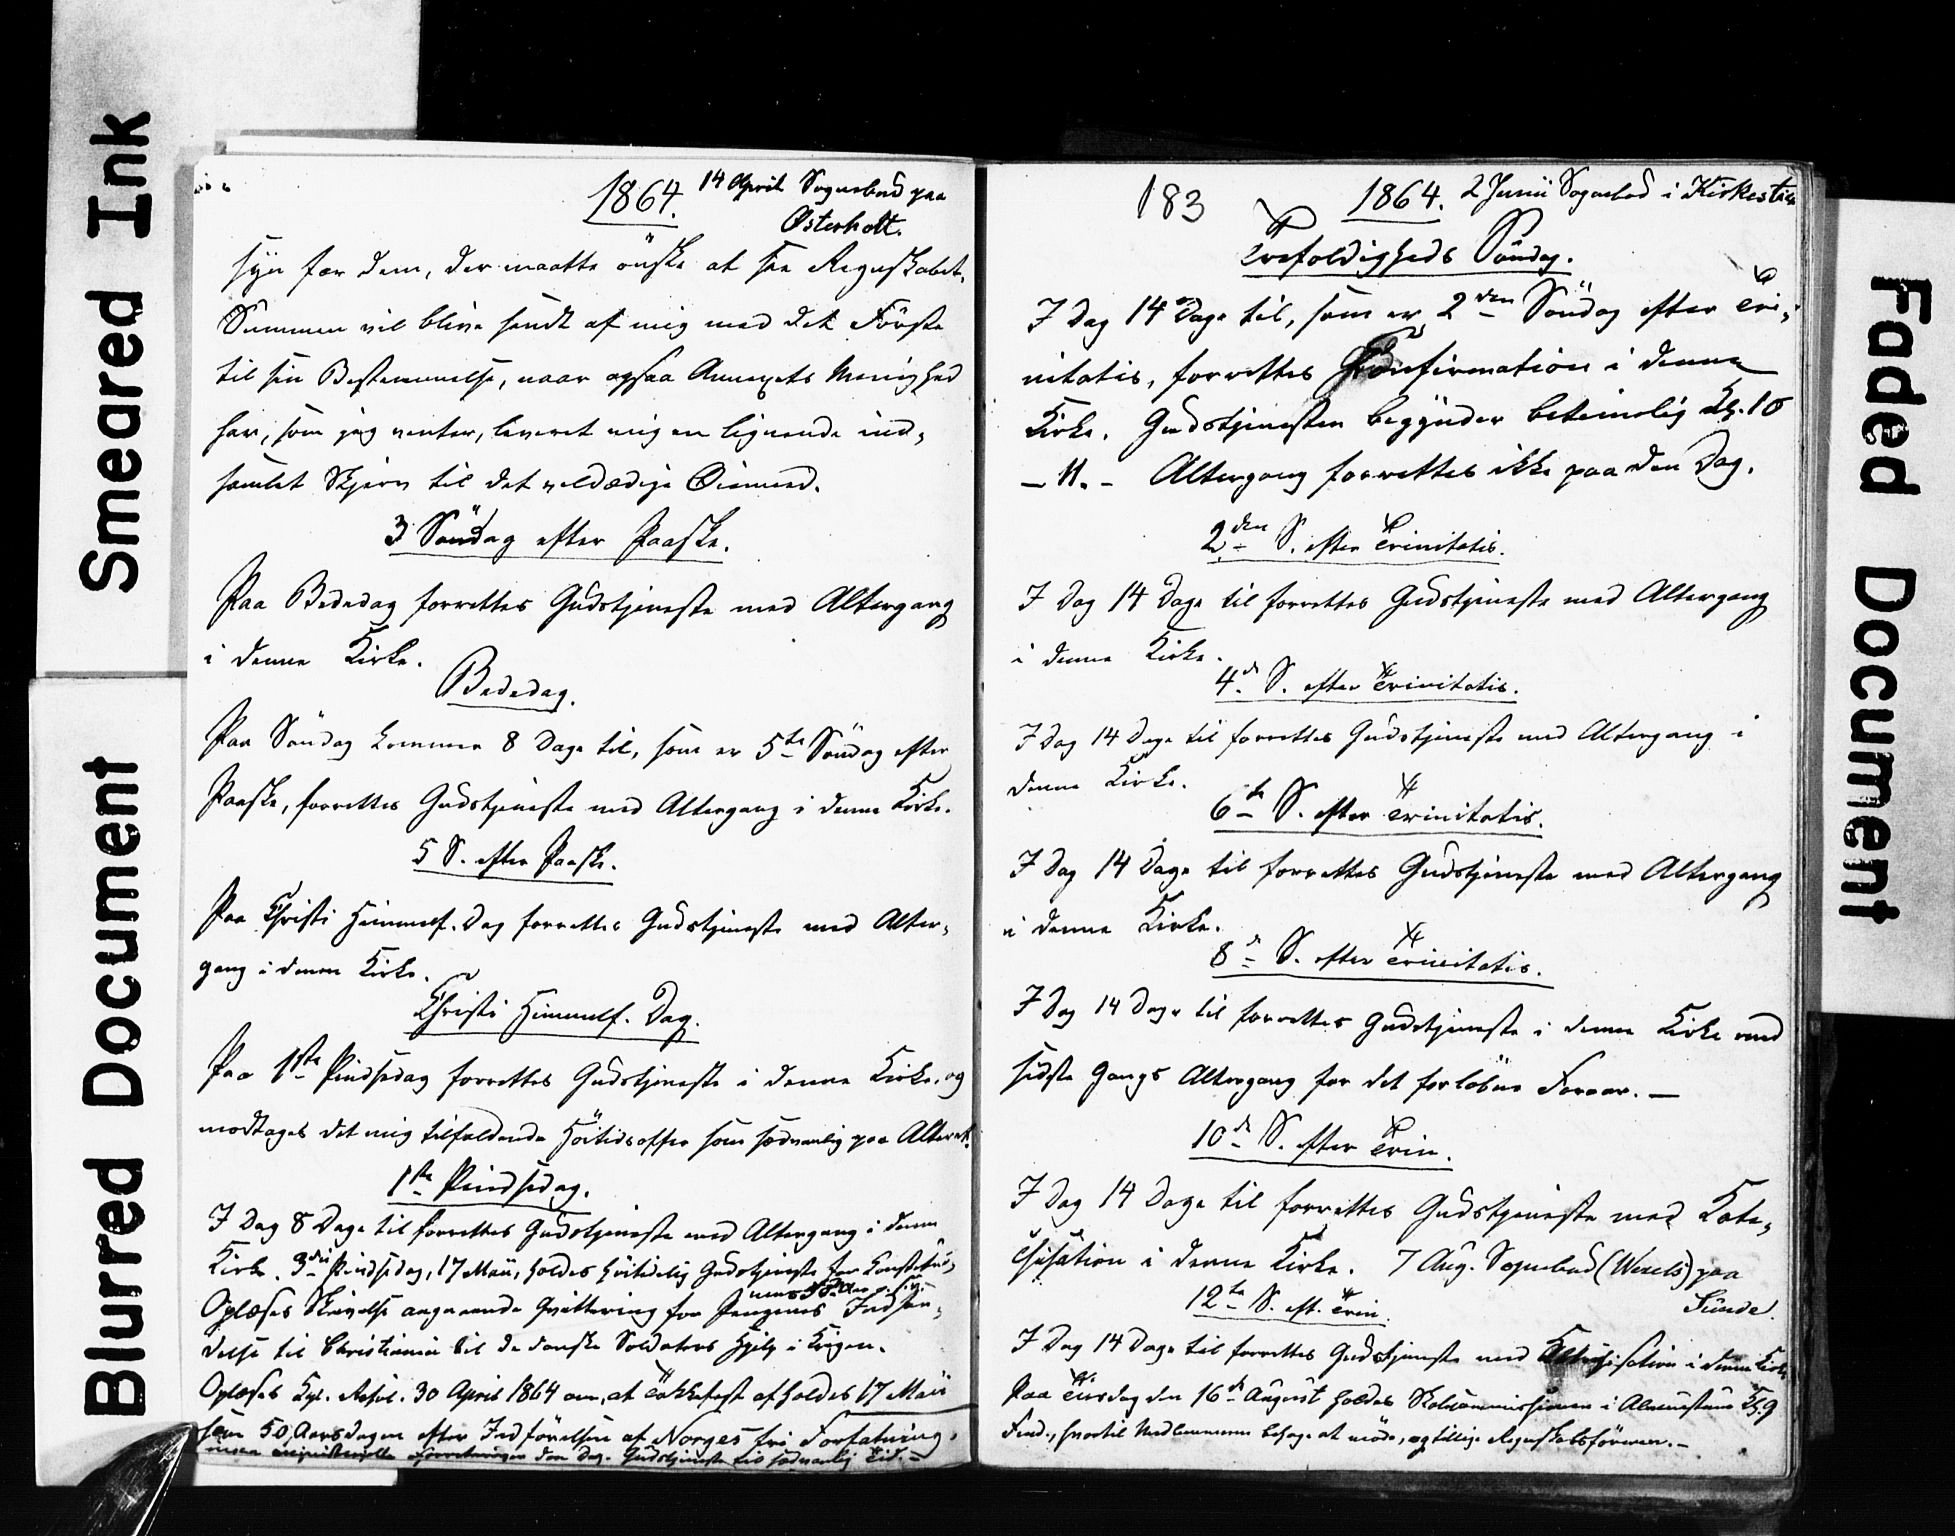 Smeared Ink
Blurred Document
1864. 14 April Sognebud paa
Østerholt.
syn for dem, der maatte önske at see Regnskabet.
Summen vil blive sendt af mig med det Första
til sin Bestemmelse, naar ogsaa Annexets Menighed
har, som jeg venter, leveret mig en lignende ind-
samlet Skjerv til det veldædige Öiemed.
3 Söndag efter Paaske.
Paa Bededag forrettes Gudstjeneste med Altergang
i denne Kirke.
Bededag.
Paa Söndag kommer 8 Dage til, som er 5te Söndag efter
Paaske, forrettes Gudstjeneste med Altergang i denne Kirke.
5 S. efter Paaske.
Paa Christi Himmelf. Dag forrettes Gudstjeneste med Alter-
gang i denne Kirke.
Christi Himmelf. Dag.
Paa 1ste Pindsedag forrettes Gudstjeneste i denne Kirke, og
modtages det mig tilfaldende Höitidsoffer som sædvanlig paa Alteret.
1ste Pindsedag.
I Dag 8 Dage til forrettes Gudstjeneste med Altergang i denne
Kirke. 3die Pindsedag, 17 Maii, holdes höitidelig Gudstjeneste for Constitu-
Oplæses Skrivelse angaaende Qvittering for Pengenes Indsen-
delse til Christiania til de danske Soldaters Hjelp i Krigen.
Oplæses Kgl. Resol. 30 April 1864 om, at Takkefest afholdes 17 Maii
som 50 Aarsdagen efter Indförelsen af Norges fri Forfatning.
den Dag. Gudstjeneste til sædvanlig Tid. -
183 1864. 2 Junii Sognebud i Kirkestuen
Trefoldigheds Söndag.
I Dag 14 Dage til, som er 2den Söndag efter Tri-
nitatis, forrettes Confirmation i denne
Kirke. Gudstjenesten begynder betimelig Kl. 10
- 11. - Altergang forrettes ikke paa den Dag.
2den S. efter Trinitatis.
I Dag 14 Dage til forrettes Gudstjeneste med Altergang
i denne Kirke.
4de S. efter Trinitatis.
I Dag 14 Dage til forrettes Gudstjeneste med Altergang i
denne Kirke.
6te S. efter Trinitatis.
I Dag 14 Dage til forrettes Gudstjeneste med Altergang
i denne Kirke.
8de S. efter Trinitatis.
I Dag 14 Dage til forrettes Gudstjeneste i denne Kirke med
sidste Gangs Altergang for det forlöbne Foraar. -
10de S. efter Trin.
I Dag 14 Dage til forrettes Gudstjeneste med Kate-
chisation i denne Kirke. 7 Aug. Sognebud (Wexels) paa
Sünde.
12te S. eft. Trin.
I Dag 14 Dage til forrettes Gudstjeneste med i denne Kirke
Paa Tirsdag den 16de August holdes Skolecommissionen i Almuestuen Kl. 9
Fmd., hvortil Medlemmerne behage at möde, og tillige Regnskabsföreren. -
Faded Document